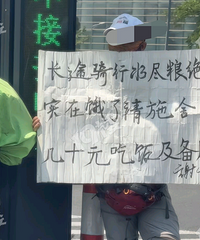 接
长途骑行水尽粮绝
实在饿了请施舍
几十元吃饭及备
谢